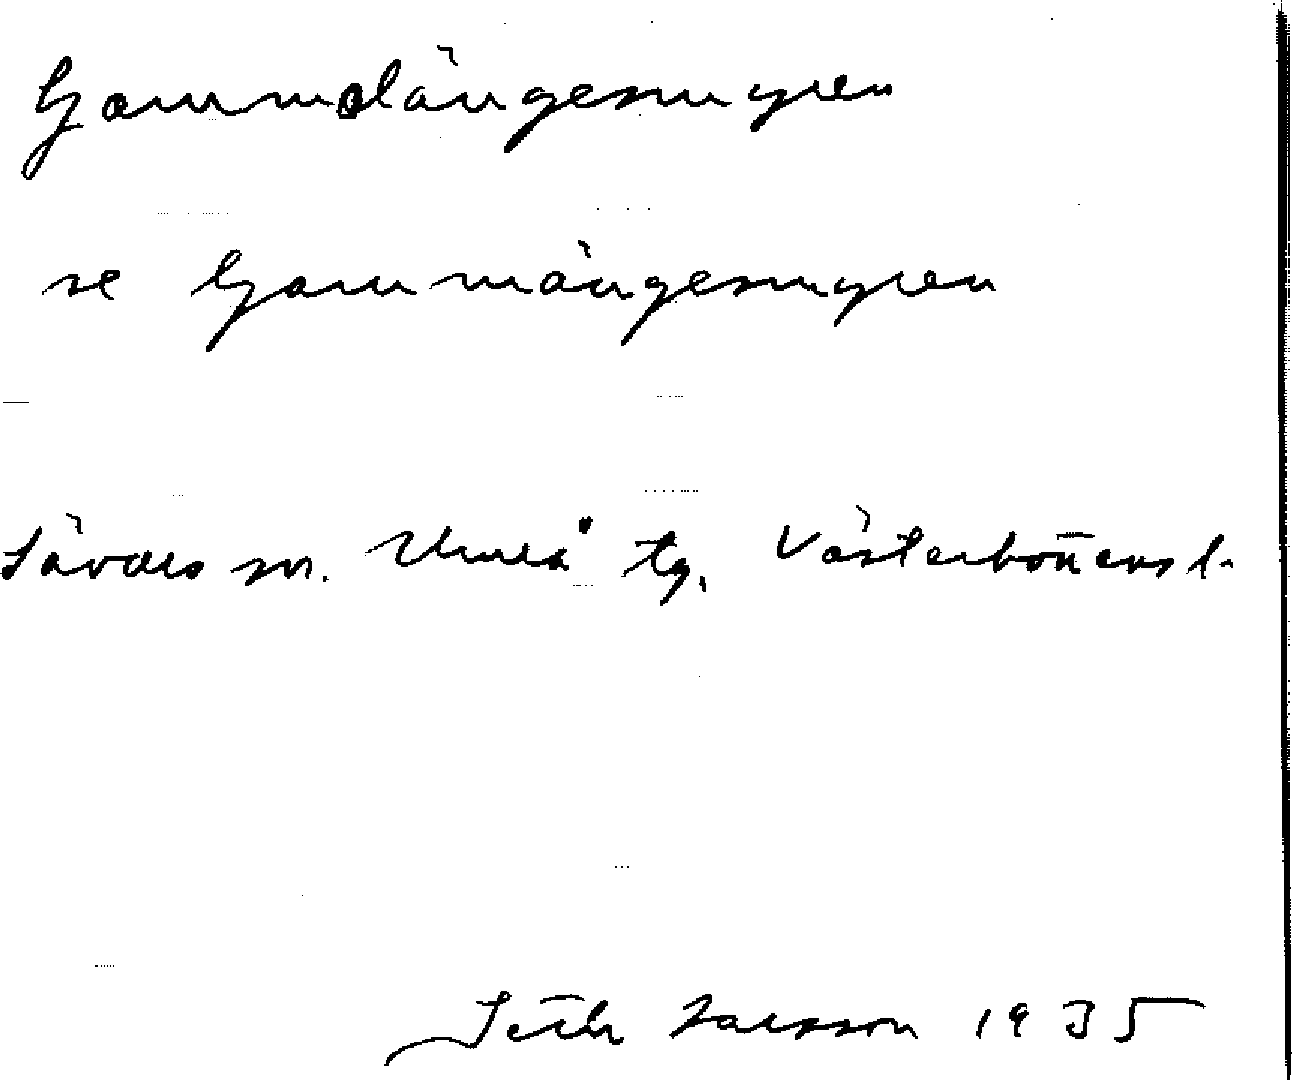 Gammelängesmyren
se Gammängesmyren
Sävars sn. Umeå tg. Västerbottens l.
Seth Larsson 1935